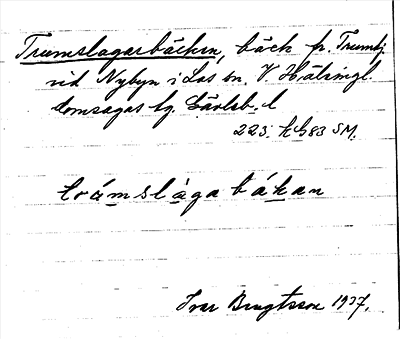 Trumslagarbäcken, bäck fr. Trumbj.
vid Nybyn i Los sn. V. Hälsingl.
domsagas tg. Gävleb. l
223. kb 83 SM.
trámslàga bákan
Ivar Bengtsson 1937.